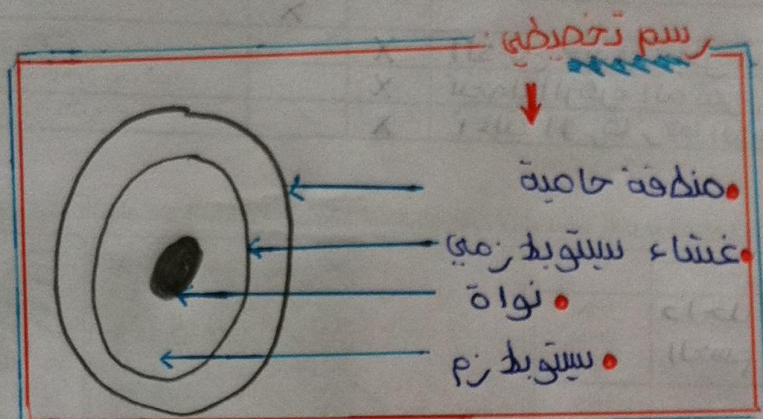 رسم تخطيطي:
منطقة حامية
غشاء سيتوبلازمي
نواة
سيتوبلازم